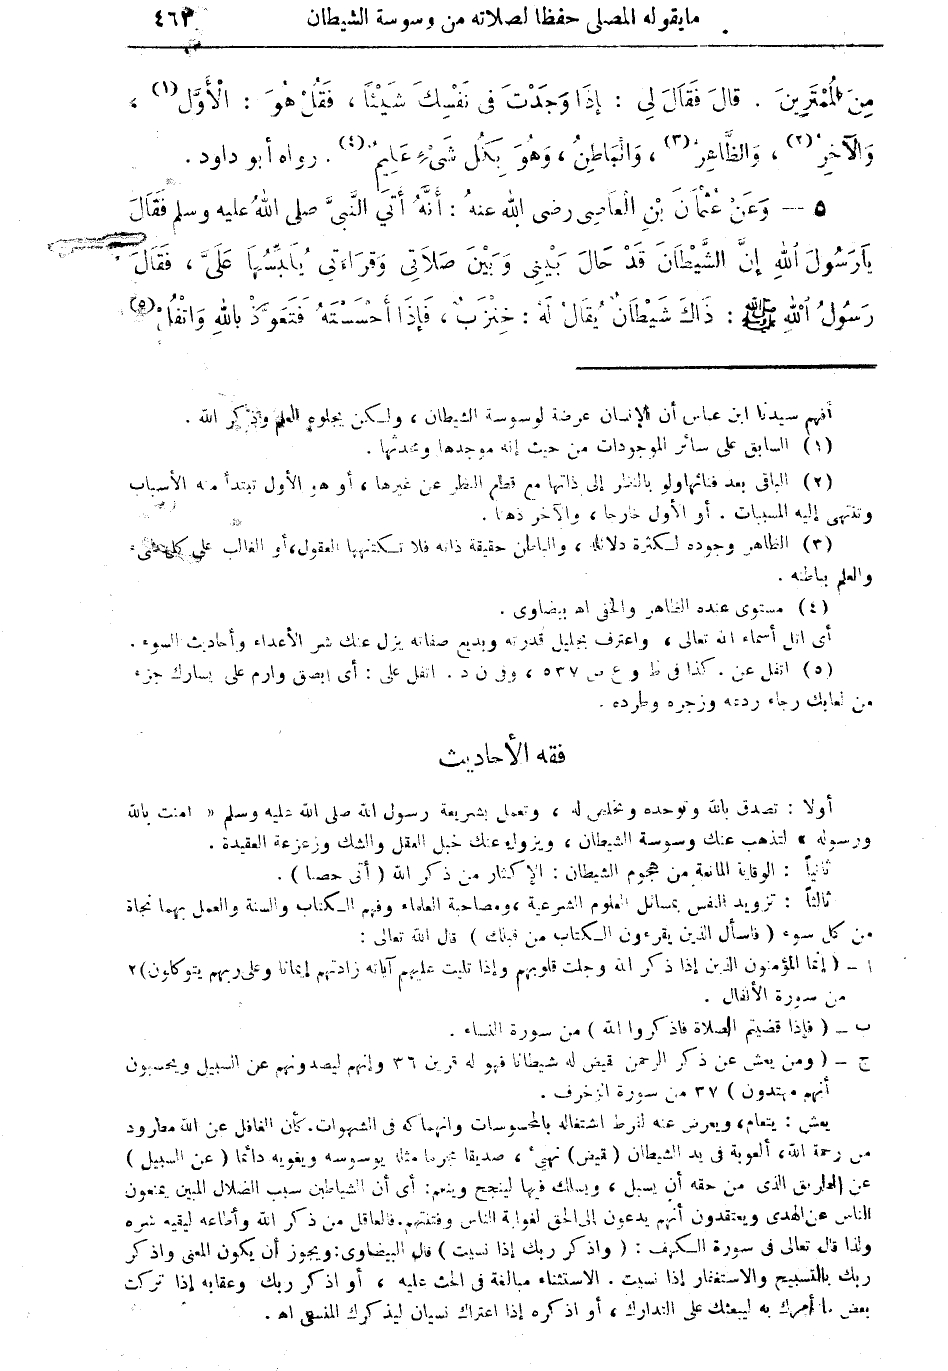 مايقوله المصلى حفظا لصلاته من وسوسة الشيطان ٤٦٣
مِنَ المُمْتَرِينَ . قالَ فَقَالَ لِي : إذَا وَجَدْتَ فى نَفْسِكَ شَيْئًا ، فَقُلْ هُوَ : الْأَوَّلُ (١) ،
وَالآخِرُ (٢) ، وَالظَّاهِرُ (٣) ، وَالْبَاطِنُ ، وَهُوَ بِكُلِّ شَىْءٍ عَلِيمٌ (٤) . رواه أبو داود .
٥ — وَعَنْ عُثْمَانَ بْنِ الْعَاصِى رضى الله عنهُ : أَنَّهُ أَتَى النَّبِىَّ صلى اللهُ عليه وسلم فَقَالَ
يَارَسُولَ اللهِ إنَّ الشَّيْطَانَ قَدْ حَالَ بَيْنِى وَبَيْنَ صَلَاتِى وَقِرَاءَتِى يُلَبِّسُهَا عَلَىَّ ، فَقَالَ
رَسُولُ اللهِ ﷺ : ذَاكَ شَيْطَانٌ يُقَالُ لَهُ : خِنْزَبٌ ، فَإذَا أَحْسَسْتَهُ فَتَعَوَّذْ بِاللهِ وَاتْفُلْ (٥)
أفهم سيدنا ابن عباس أن الإنسان عرضة لوسوسة الشيطان ، ولكن يجلوه العلم وذكر الله .
(١) السابق على سائر الموجودات من حيث إنه موجدها ومحدثها .
(٢) الباقى بعد فنائهاولو بالنظر إلى ذاتها مع قطع النظر عن غيرها ، أو هو الأول تبتدأ منه الأسباب
وتنتهى إليه المسببات . أو الأول خارجا ، والآخر ذهنا .
(٣) الظاهر وجوده لكثرة دلائله ، والباطن حقيقة ذاته فلا تكتنهها العقول،أو الغالب على كل شىء
والعلم بباطنه .
(٤) مستوى عنده الظاهر والخفى اه بيضاوى .
أى اتل أسماء الله تعالى ، واعترف بجليل قدرته وبديع صفاته يزل عنك شر الأعداء وأحاديث السوء .
(٥) اتفل عن . كذا فى ط و ع ص ٥٣٧ ، وفى ن د . اتفل على : أى ابصق وارم على يسارك جزء
من لعابك رجاء ردته وزجره وطرده .
فقه الأحاديث
أولا : تصدق بالله وتوحده وتخلص له ، وتعمل بشريعة رسول الله صلى الله عليه وسلم « امنت بالله
ورسوله » لتذهب عنك وسوسة الشيطان ، ويزول عنك خبل العقل والشك وزعزعة العقيدة .
ثانياً : الوقاية المانعة من هجوم الشيطان : الإكثار من ذكر الله ( أتى حصنا ) .
ثالثاً : تزويد النفس بمسائل العلوم الشرعية ،ومصاحبة العلماء وفهم الكتاب والسنة والعمل بهما نجاة
من كل سوء ( فاسأل الذين يقرءون الكتاب من قبلك ) قال الله تعالى :
ا — ( إنما المؤمنون الذين إذا ذكر الله وجلت قلوبهم وإذا تليت عليهم آياته زادتهم إيمانا وعلى ربهم يتوكلون)٢
من سورة الأنفال .
ب — ( فإذا قضيتم الصلاة فاذكروا الله ) من سورة النساء .
ج — ( ومن يعش عن ذكر الرحمن نقيض له شيطانا فهو له قرين ٣٦ وإنهم ليصدونهم عن السبيل ويحسبون
أنهم مهتدون ) ٣٧ من سورة الزخرف .
يعش : يتعام، ويعرض عنه لفرط اشتغاله بالمحسوسات وانهماكه فى الشهوات.كأن الغافل عن الله مطرود
من رحمة الله، ألعوبة فى يد الشيطان ( نقيض) نهيئ ، صديقا مجرما مثله يوسوسه ويغويه دائما ( عن السبيل )
عن الطريق الذى من حقه أن يسبل ، ويسلك فيها لينجح وينعم: أى أن الشياطين سبب الضلال المبين يمنعون
الناس عن الهدى ويعتقدون أنهم يدعون إلى الحق لغواية الناس وفتنتهم.فالعاقل من ذكر الله وأطاعه ليقيه شره
ولذا قال تعالى فى سورة الكهف : ( واذكر ربك إذا نسيت ) قال البيضاوى:ويجوز أن يكون المعنى واذكر
ربك بالتسبيح والاستغفار إذا نسيت . الاستثناء مبالغة فى الحث عليه ، أو اذكر ربك وعقابه إذا تركت
بعض ما أمرك به ليبعثك على التدارك ، أو اذكره إذا اعتراك نسيان ليذكرك المنسى اه .